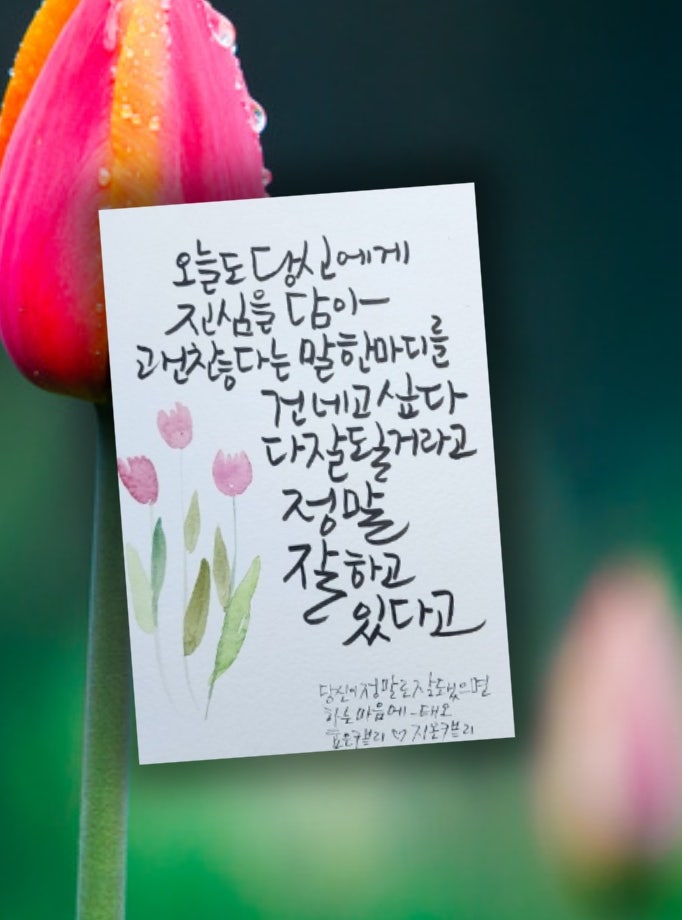 오늘도 당신에게
진심을 담아
괜찮다는 말 한마디를
건네고 싶다
다 잘 될 거라고
정말
잘하고
있다고
당신이 정말로 잘 됐으면
하는 마음에 - 태오
캘리 ♡ 지온캘리